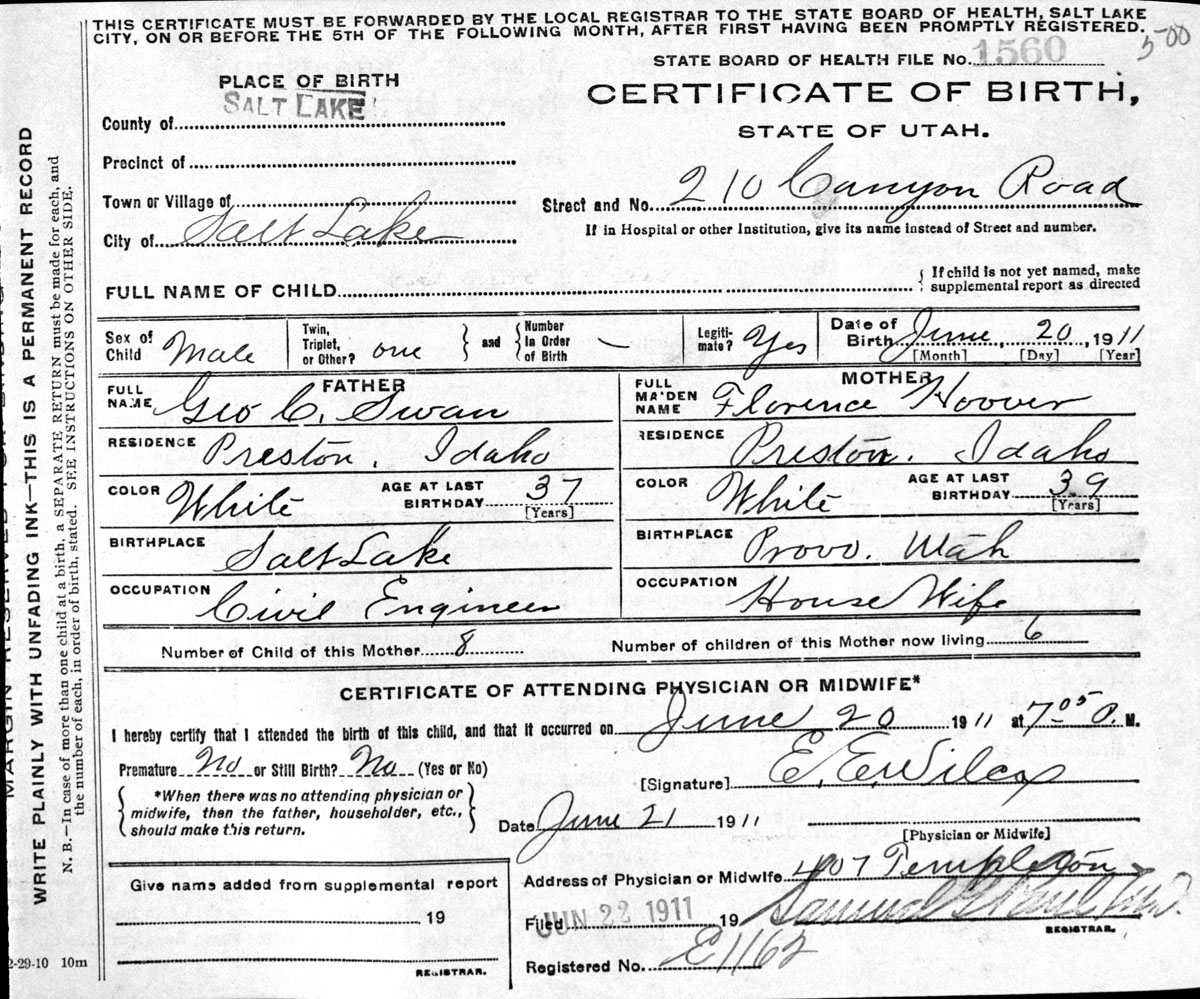 THIS CERTIFICATE MUST BE FORWARDED BY THE LOCAL REGISTRAR TO THE STATE BOARD OF HEALTH, SALT LAKE
CITY, ON OR BEFORE THE 5TH OF THE FOLLOWING MONTH, AFTER FIRST HAVING BEEN PROMPTLY REGISTERED.
500
STATE BOARD OF HEALTH FILE No. 1560
PLACE OF BIRTH
CERTIFICATE OF BIRTH,
STATE OF UTAH.
SALT LAKE
County of
Precinct of
Town or Village of
City of Salt Lake
Street and No. 210 Canyon Road
If in Hospital or other Institution, give its name instead of Street and number.
FULL NAME OF CHILD
{ If child is not yet named, make
supplemental report as directed
Sex of Child Male
Twin, Triplet, or Other? one } and { Number In Order of Birth —
Legiti-mate? Yes
Date of Birth June 20, 1911
[Month] [Day] [Year]
FATHER
FULL NAME Geo C. Swan
RESIDENCE Preston, Idaho
COLOR White AGE AT LAST BIRTHDAY 37 [Years]
BIRTHPLACE Salt Lake
OCCUPATION Civil Engineer
MOTHER
FULL MAIDEN NAME Florence Hoover
RESIDENCE Preston. Idaho
COLOR White AGE AT LAST BIRTHDAY 39 [Years]
BIRTHPLACE Provo. Utah
OCCUPATION House Wife
Number of Child of this Mother 8 Number of children of this Mother now living 6
CERTIFICATE OF ATTENDING PHYSICIAN OR MIDWIFE*
I hereby certify that I attended the birth of this child, and that it occurred on June 20 1911 at 7 05 P. M.
Premature No or Still Birth? No (Yes or No)
[Signature] E. E. Wilcox
{ *When there was no attending physician or
midwife, then the father, householder, etc.,
should make this return. }
Date June 21 1911
[Physician or Midwife]
Give name added from supplemental report
19
REGISTRAR.
Address of Physician or Midwife 407 Templeton
Filed JUN 22 1911 19 Samuel G Paul M.D.
REGISTRAR.
Registered No. E1162
2-29-10 10m
WRITE PLAINLY WITH UNFADING INK—THIS IS A PERMANENT RECORD
N. B.—In case of more than one child at a birth, a SEPARATE RETURN must be made for each, and
the number of each, in order of birth, stated. SEE INSTRUCTIONS ON OTHER SIDE.